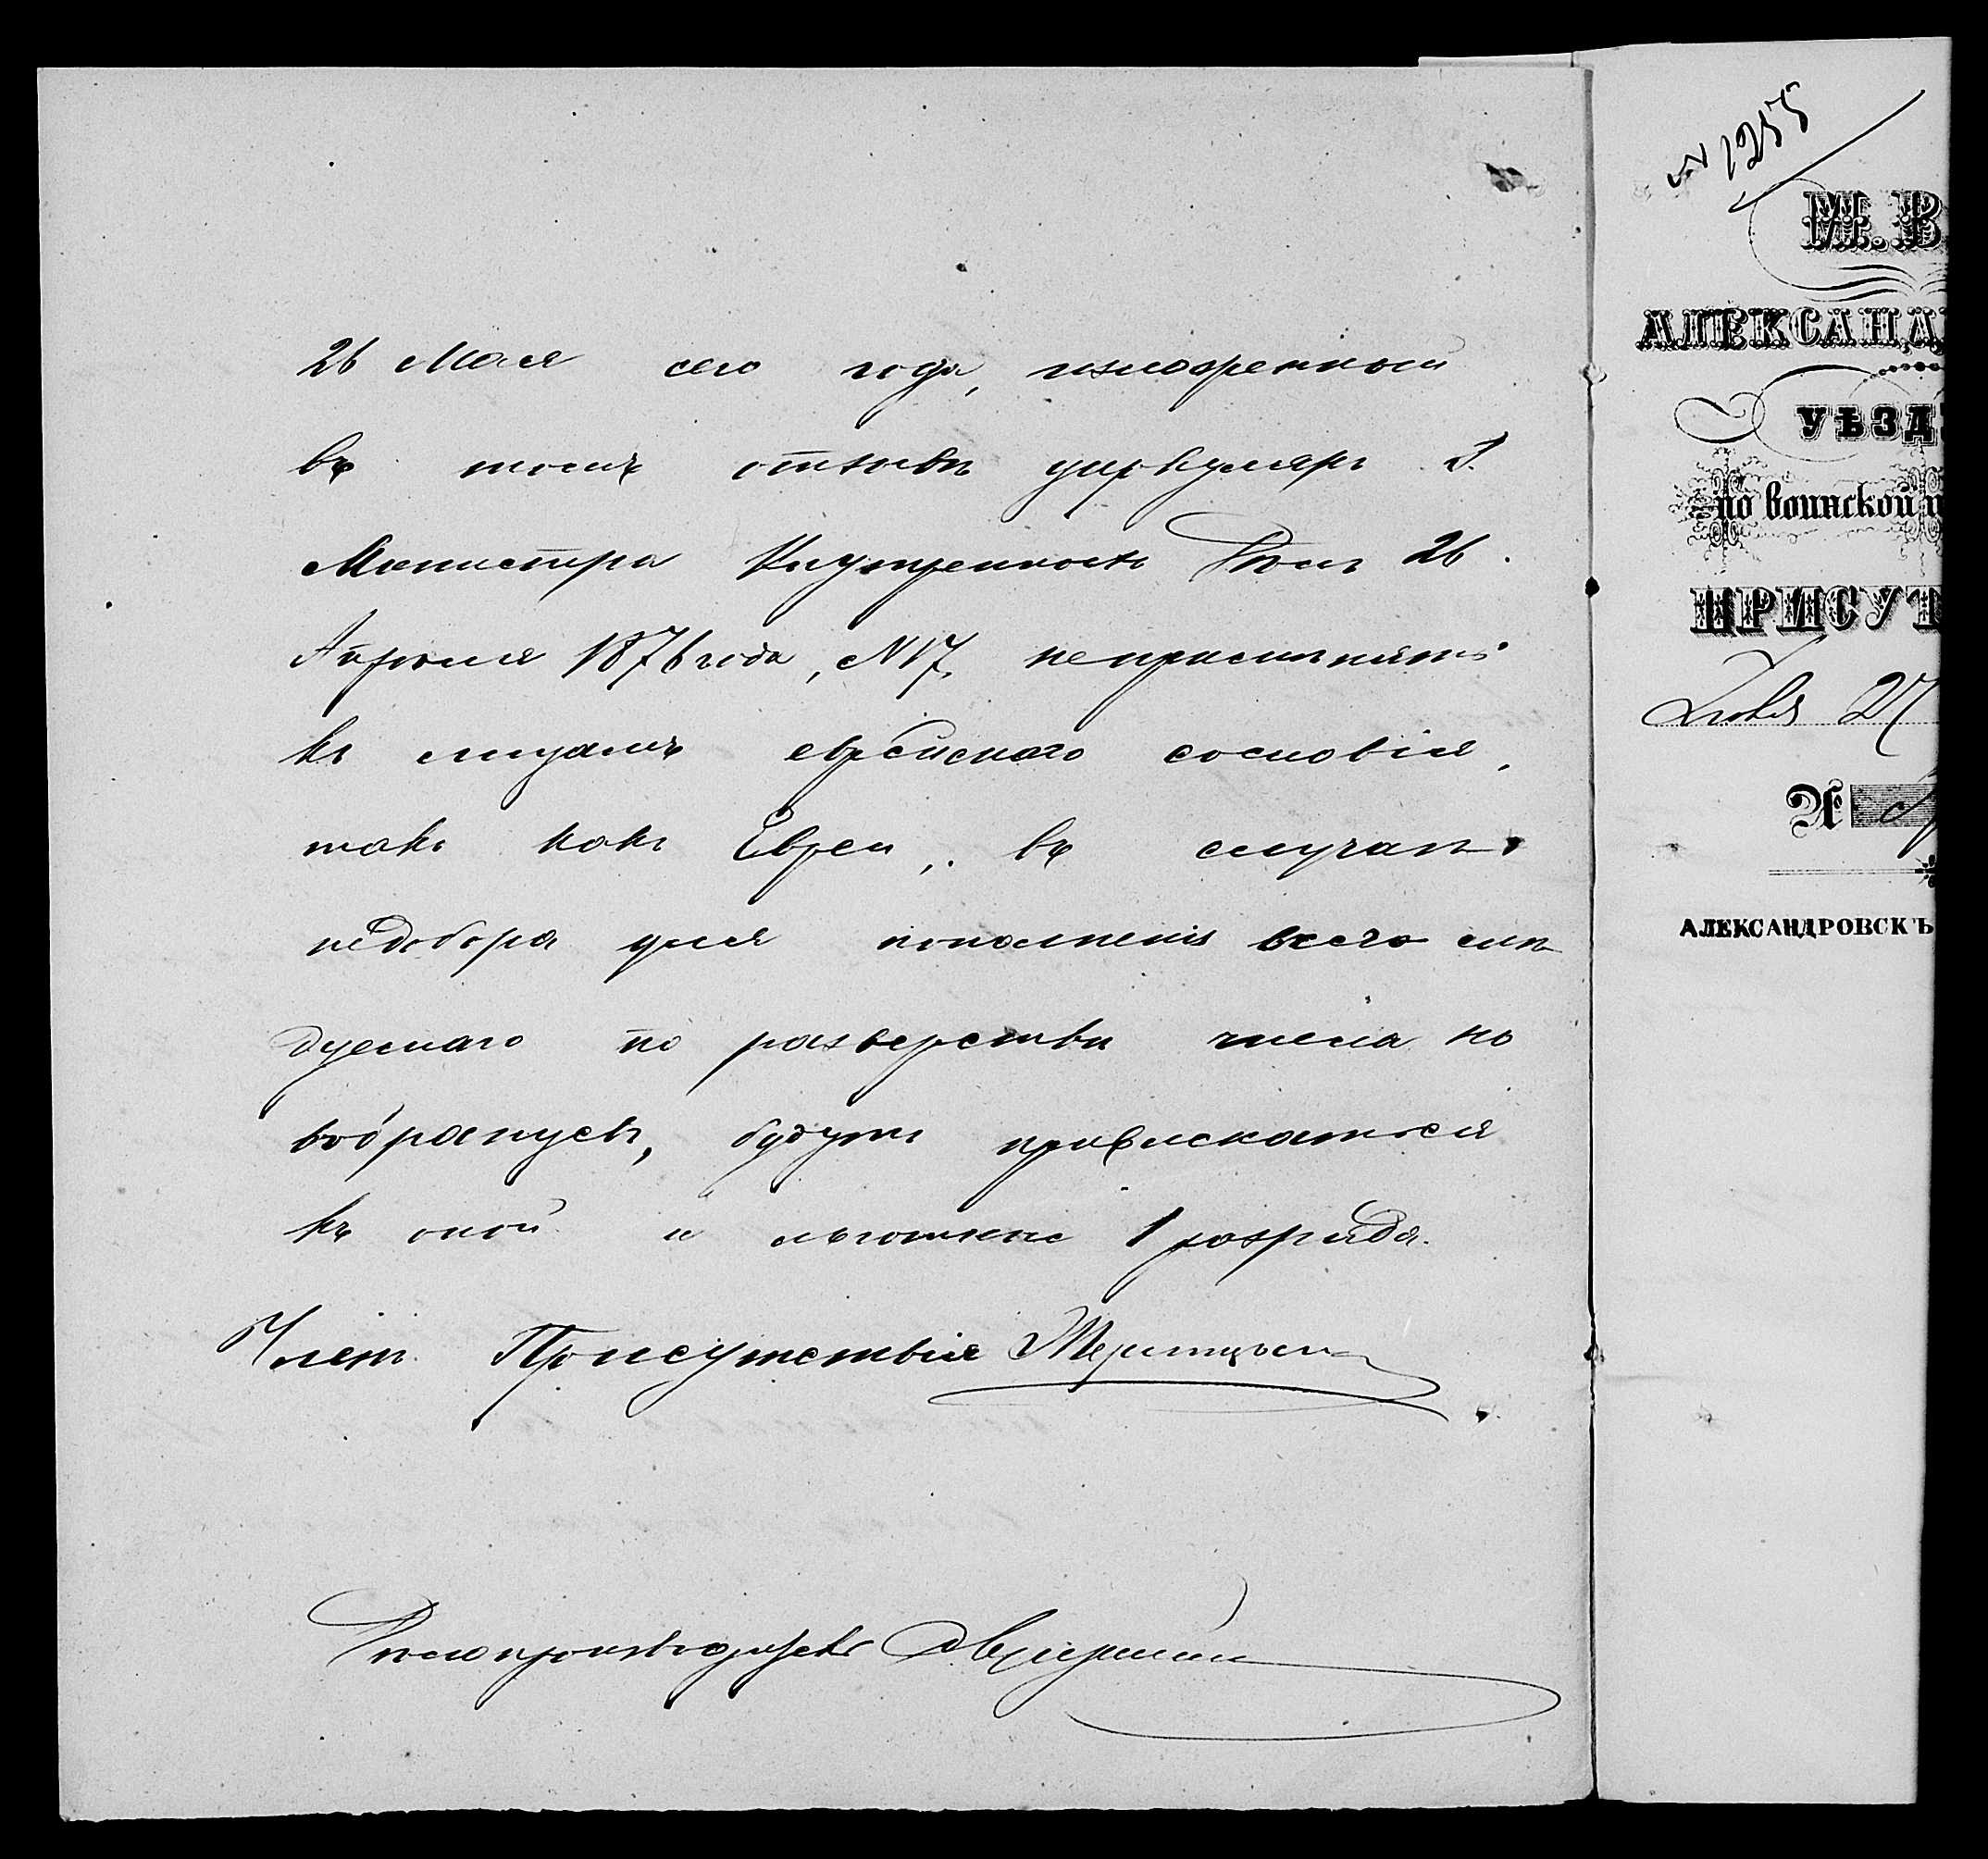 26 Мая сего года, изложенный
въ томъ отзывѣ циркуляръ Г.
Министра Внутреннихъ Дѣлъ 26
Апрѣля 1876 года, №17, непримѣнять
къ лицамъ еврейскаго сословія,
такъ какъ Евреи, въ случаѣ
недобора для пополненія всего слѣ
дуемаго по разверсткѣ числа но
вобранцевъ, будутъ привлекаться
къ оной и льготные 1 разряда.
Членъ Присутствія
Дѣлопроизводитель
№ 1255
М. В.
АЛЕКСАНД
УѢЗД
по воинской п
ПРИСУТ
Іюня 27
№
АЛЕКСАНДРОВСКЪ